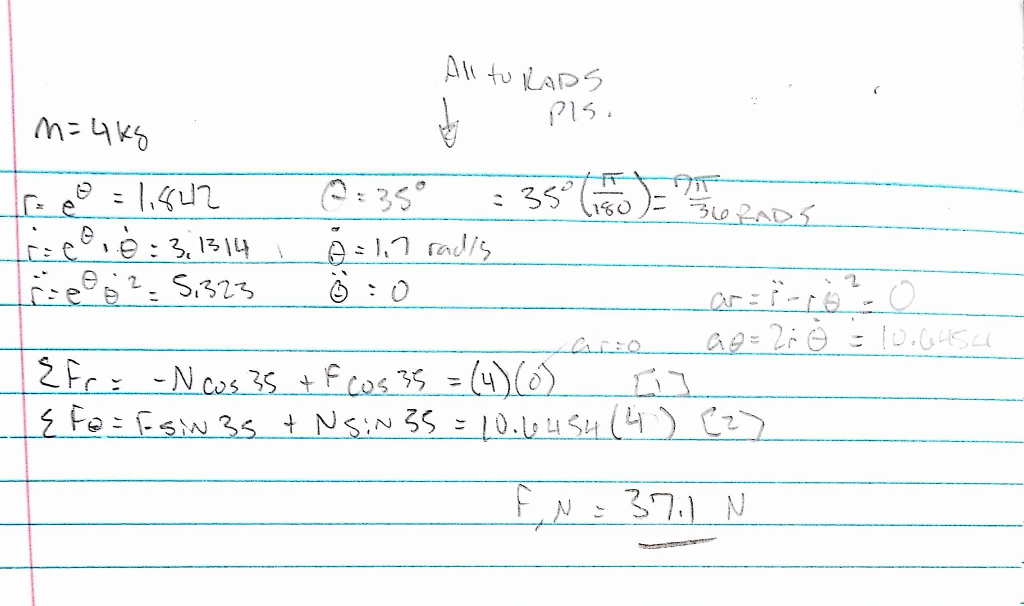 All to RADS
Pls.
m = 4 kg
r = e^θ = 1.842 θ = 35° = 35° (π/180) = 7π/36 RADS
ṙ = e^θ · θ̇ = 3.1314 θ̇ = 1.7 rad/s
r̈ = e^θ θ̇² = 5.323 θ̈ = 0
ar = r̈ - rθ̇² = 0
aθ = 2ṙθ̇ = 10.6454
ar = 0
ΣFr = -N cos 35 + F cos 35 = (4)(0) [1]
ΣFθ = F sin 35 + N sin 35 = 10.6454 (4) [2]
F, N = 37.1 N